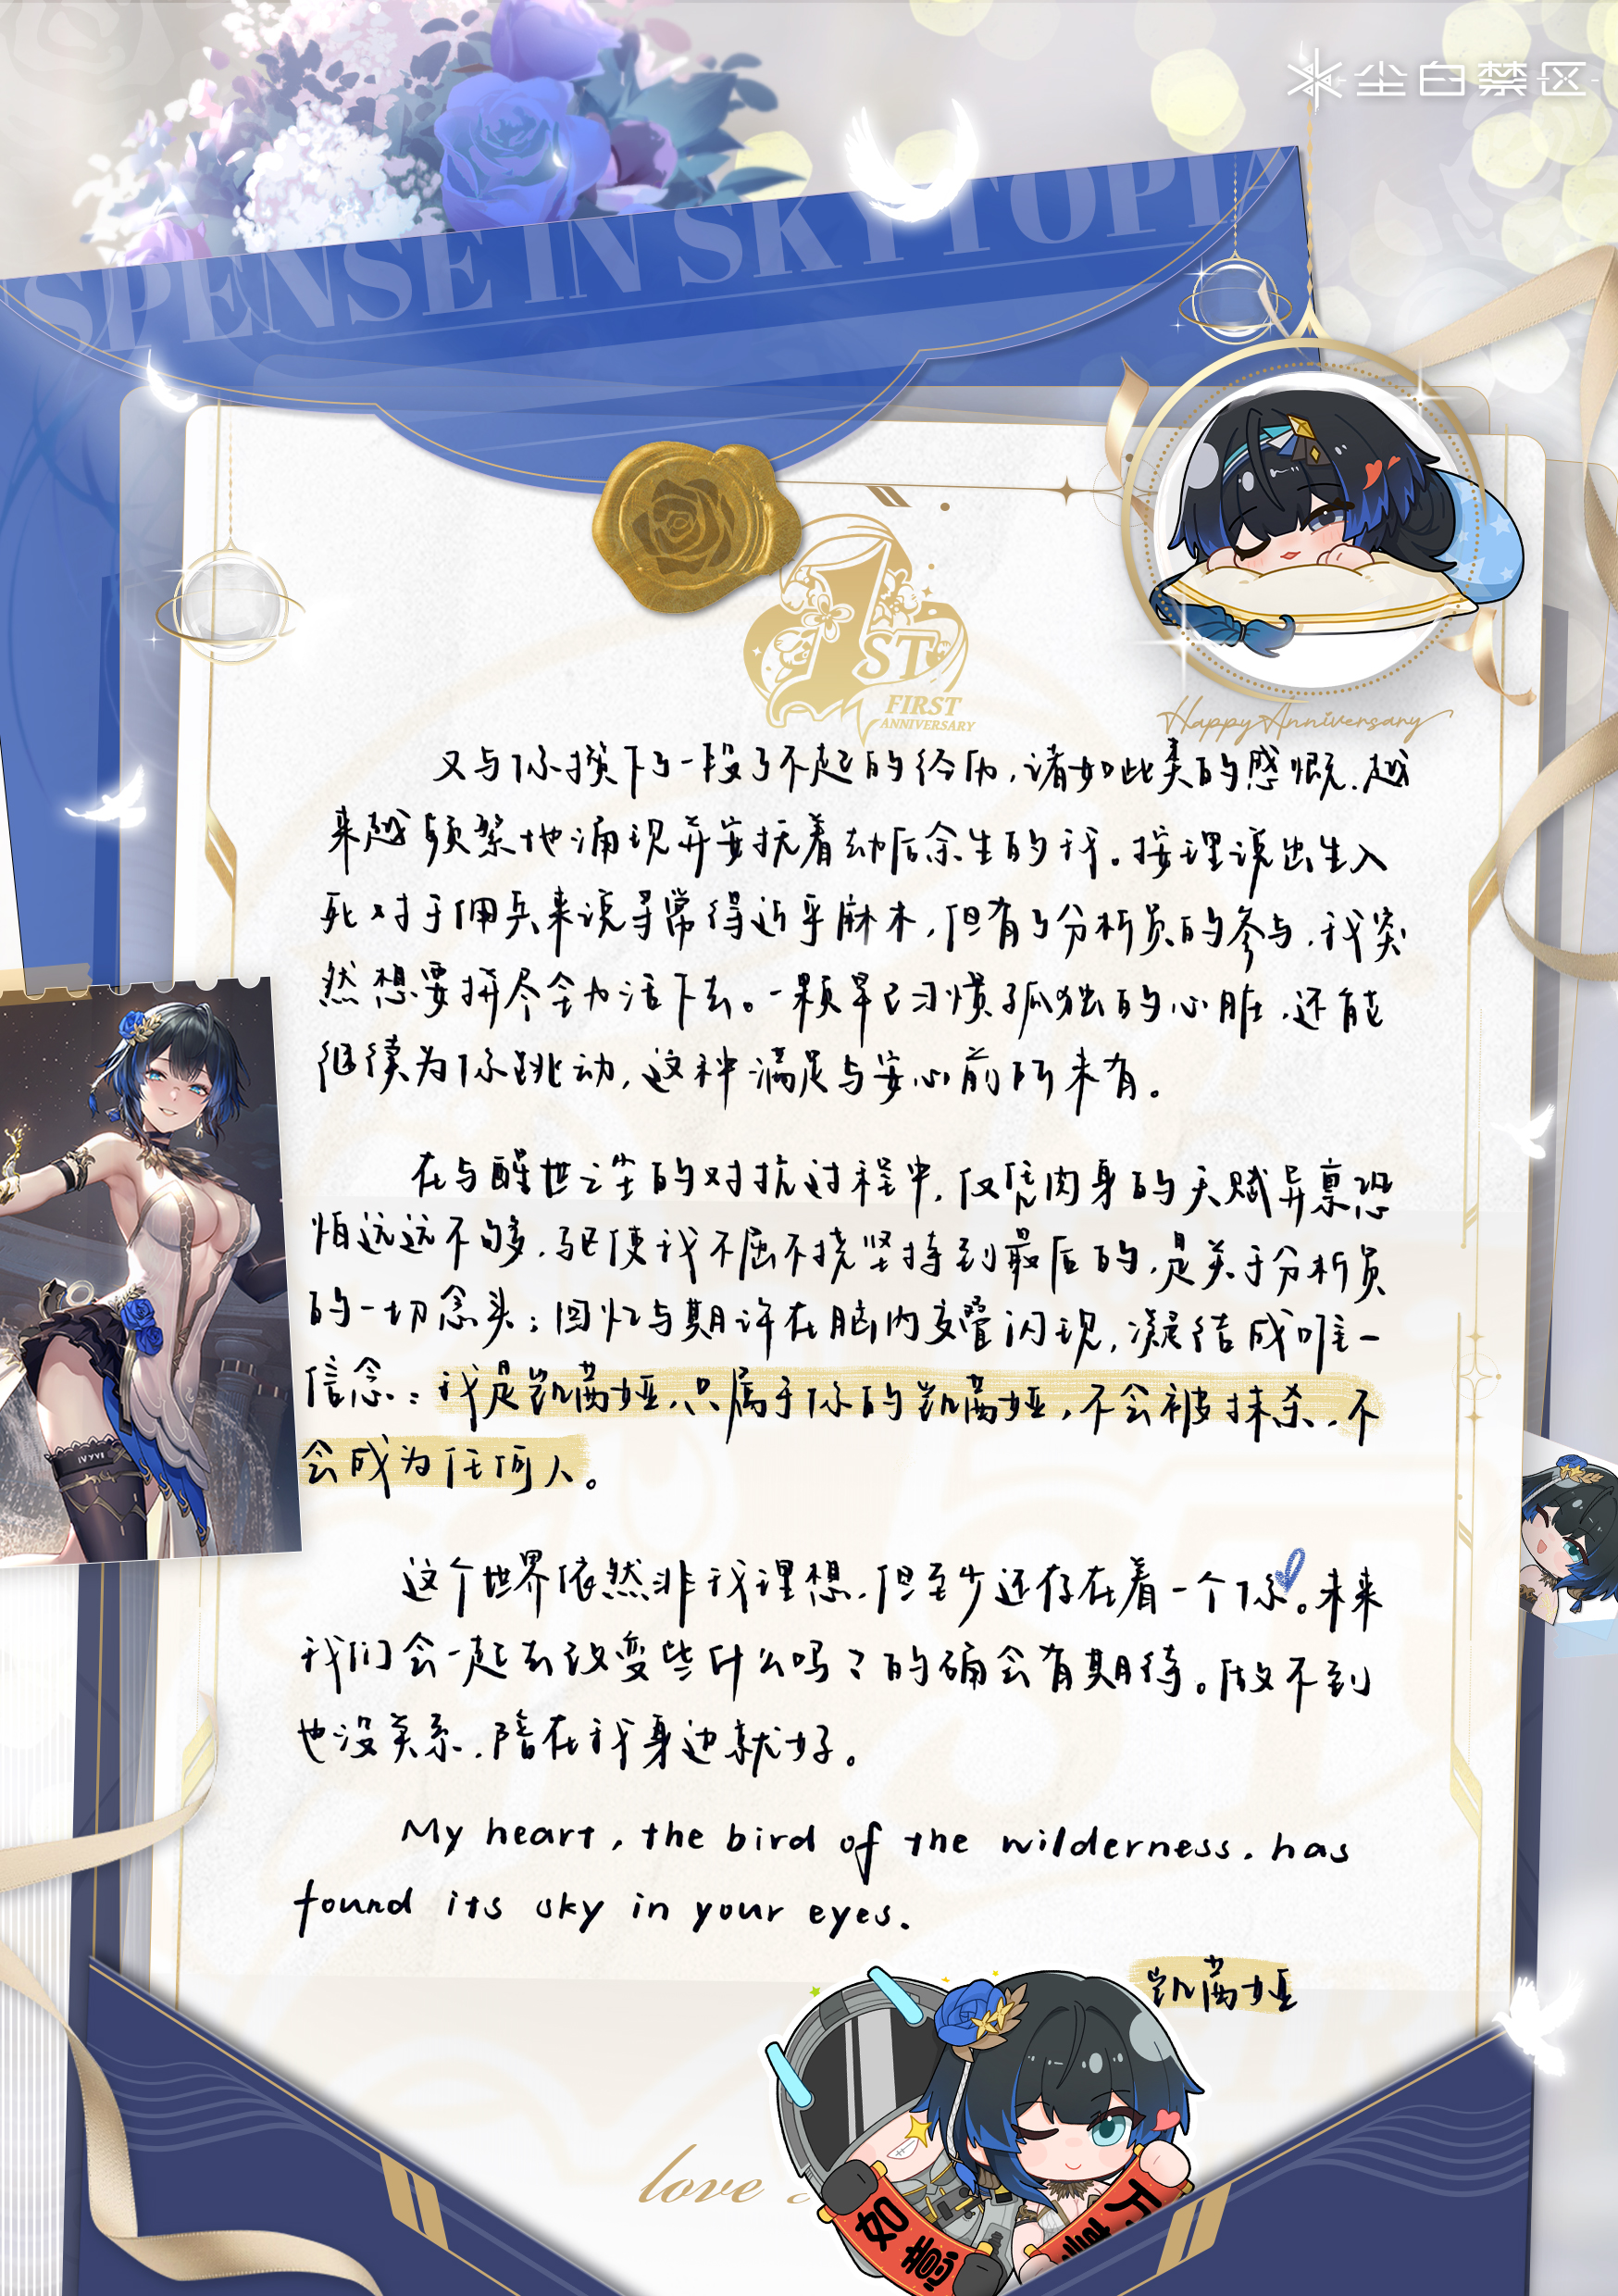 尘白禁区
SPENSE IN SKYTOPIA
1ST
FIRST
ANNIVERSARY
Happy Anniversary
又与你攒下了一段了不起的经历，诸如此类的感慨，越
来越频繁地涌现并安抚着劫后余生的我。按理说出生入
死对于佣兵来说寻常得近乎麻木，但有了分析员的参与，我突
然想要拼尽全力活下去。一颗早已习惯孤独的心脏，还能
继续为你跳动，这种满足与安心前所未有。
在与醒世之尘的对抗过程中，仅凭肉身的天赋异禀恐
怕远远不够，驱使我不屈不挠坚持到最后的，是关于分析员
的一切念头；回忆与期许在脑内交叠闪现，凝结成唯一
信念：我是凯茜娅，只属于你的凯茜娅，不会被抹杀，不
会成为任何人。
这个世界依然非我理想，但至少还存在着一个你。未来
我们会一起去改变些什么吗？的确会有期待。做不到
也没关系，陪在我身边就好。
My heart, the bird of the wilderness, has
found its sky in your eyes.
凯茜娅
love
如意
万